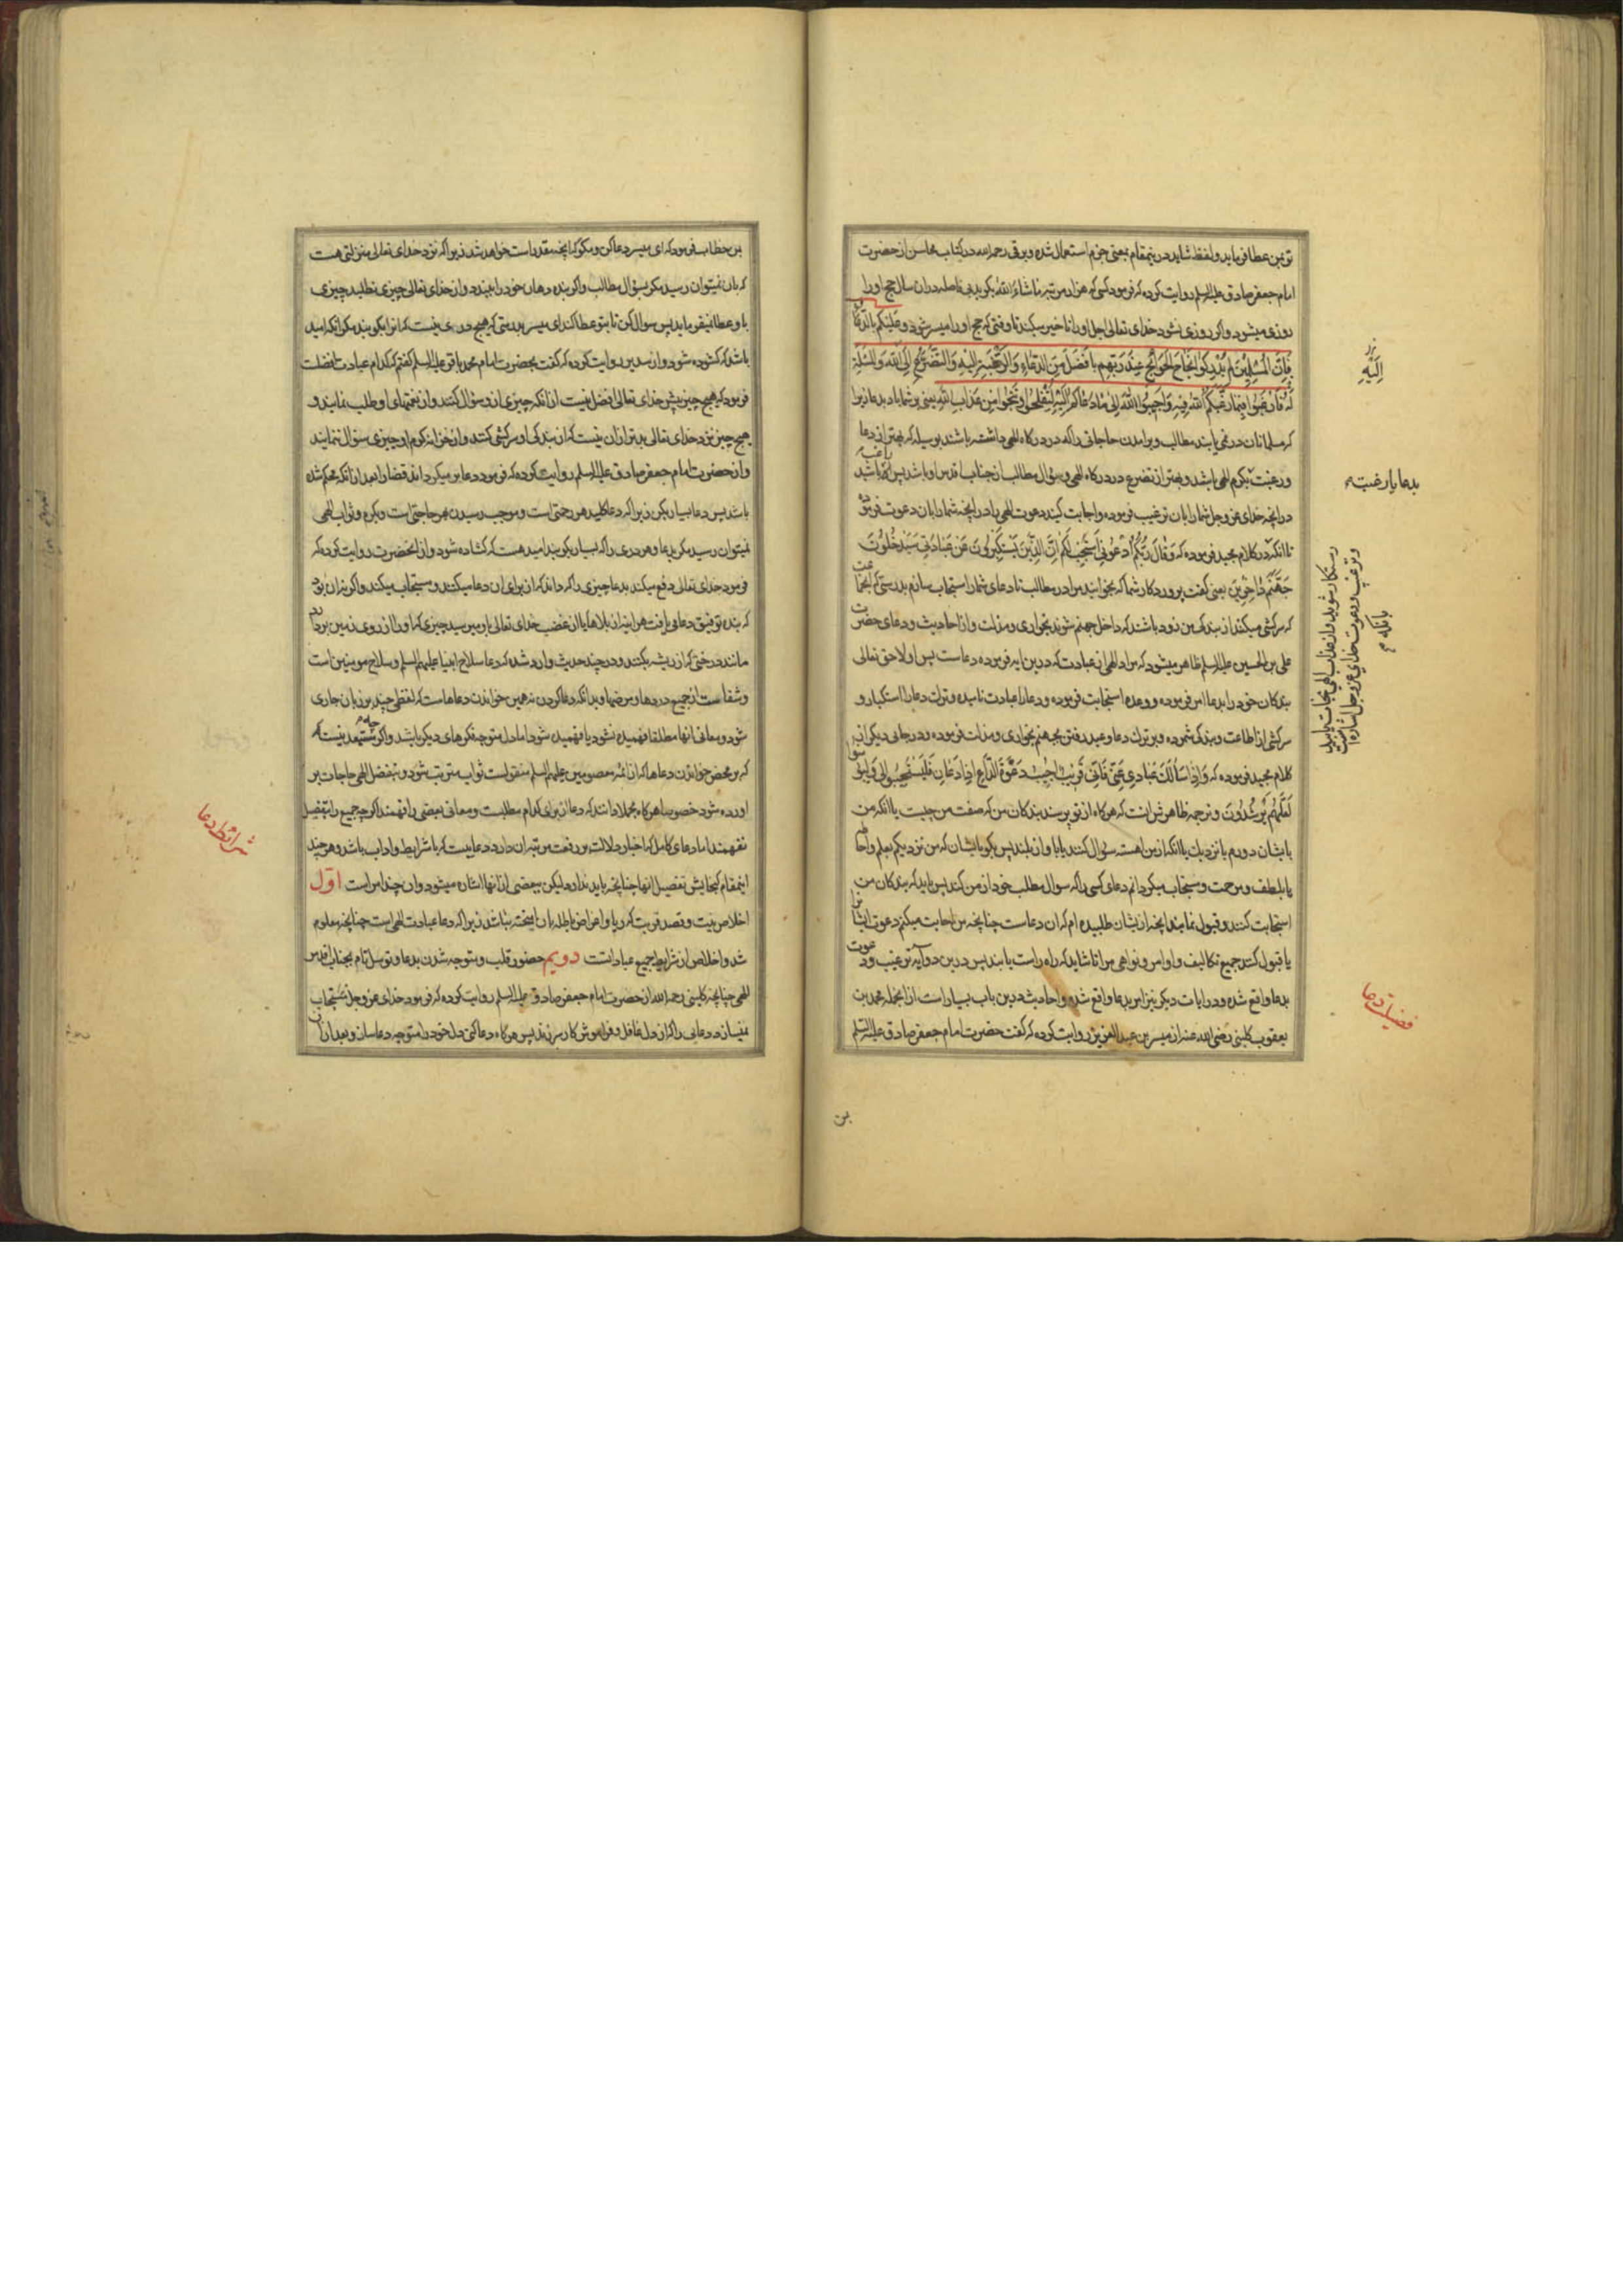 تو بمن عطا فرماید و لفظ شاید درینمقام بمعنی جزم استعمال شده و برقی رحمه الله در کتاب محاسن از حضرت
امام جعفر صادق علیه السلم روایت کرده که فرمود کسی که هزار مرتبه ماشاء الله بگوید بی فاصله در ان سال حج او را
روزی میشود و اگر روزی نشود خدای تعالی اجل او را تاخیر میکند تا وقتی که حج او را میسر شود و علیکم بالدعاء
فَاِنَّ الْمُسْلِمینَ لَمْ یُدْرِکُوا نَجَاحَ الْحَوائِجِ عِنْدَ رَبِّهِم بِاَفْضَلَ مِنَ الدُّعاءِ وَالرَّغْبَةِ اِلَیْهِ وَالتَّضَرُّعِ اِلَی اللهِ وَالْمَسْئَلَةِ
لَهُ فَارْغَبُوا فِیما رَغَّبَکُمُ اللهُ فیهِ وَاَجیبُوا اللهَ اِلی ما دَعاکُم اِلَیْهِ لِتُفْلِحُوا وَتَنْجُوا مِنْ عَذابِ اللهِ یعنی بر شما باد بدعا زیرا
که مسلمانان در نمی یابند مطالب و برامدن حاجاتی را که در درکاه الهی داشته باشند بوسیله که بهتر از دعا
و رغبت بکرم الهی باشد و بهتر از تضرع در درکاه الهی و سؤال مطالب از جناب اقدس او باشد پس راغب باشید
در انچه خدای عز و جل شما را بان ترغیب فرموده و اجابت کنید دعوت الهی را در انچه شما را بان دعوت فرموده
تا انکه در کلام مجید فرموده که وَقالَ رَبُّکُمُ ادْعُونی اَسْتَجِبْ لَکُمْ اِنَّ الَّذینَ یَسْتَکْبِرُونَ عَنْ عِبادَتی سَیَدْخُلُونَ
جَهَنَّمَ داخِرینَ یعنی کفت پروردکار شما که بخوانید مرا در مطالب تا دعای شما را استجاب سازم بدرستی که انجماعت
که سرکشی میکنند از بندکی من زود باشد که داخل جهنم شوند بخواری و مذلت و از احادیث و دعای حضرت
علی بن الحسین علیه السلم ظاهر میشود که مراد الهی از عبادت که درین ایه فرموده دعاست پس اولا حق تعالی
بندکان خود را بدعا امر فرموده و وعده استجابت فرموده و دعا را عبادت نامیده و ترک دعا را استکبار و
سرکشی از اطاعت و بندکی شمرده و بر ترک دعا وعید رفتن بجهنم بخواری و مذلت فرموده و در جائی دیکر از
کلام مجید فرموده که وَاِذا سَاَلَکَ عِبادی عَنّی فَاِنّی قَریبٌ اُجیبُ دَعْوَةَ الدّاعِ اِذا دَعانِ فَلْیَسْتَجیبُوا لی وَلْیُؤْمِنُوا بی
لَعَلَّهُمْ یَرْشُدُونَ و ترجمه ظاهرش انست که هرکاه از تو پرسند بندکان من که صفت من چیست یا انکه من
بایشان دورم یا نزدیک یا انکه از من اهسته سؤال کنند یا باواز بلند پس بکو بایشان که من نزدیکم بعلم و احاطه
یا بلطف و مرحمت و مستجاب میکردانم دعای کسی را که سوال مطلب خود از من کند پس باید که بندکان من
استجابت کنند و قبول نمایند انچه از ایشان طلبیده ام که ان دعاست چنانچه من اجابت میکنم دعوت ایشانرا
یا قبول کنند جمیع تکالیف و اوامر و نواهی مرا تا شاید که راه راست یابند پس درین دو آیه ترغیب و دعوت
بدعا واقع شده و در ایات دیکر نیز امر بدعا واقع شده و احادیث درین باب بسیار است از انجمله محمد بن
یعقوب کلینی رضی الله عنه از میسر بن عبد العزیز روایت کرده که کفت حضرت امام جعفر صادق علیه السلم
بدعا یا رغبت
رستکار شوید و از عذاب الهی نجات یابید
و ترغیب و دعوت خدای عز و جل اشاره است
بانکه
اِلَیْهِ
فضیلت دعا
بن
بن خطاب فرمود که ای میسر دعا کن و مکو که انچه مقدر است خواهد شد زیرا که نزد خدای تعالی منزلتی هست
که بان نمیتوان رسید مکر بسؤال مطالب و اکر بنده دهان خود را ببندد و از خدای تعالی چیزی نطلبد چیزی
باو عطا نمیفرماید پس سوال کن تا بتو عطا کند ای میسر بدرستی که هیچ دری نیست که انرا بکوبند مکر انکه امید
باشد که کشوده شود و از سدیر روایت کرده که کفت بحضرت امام محمد باقر علیه السلم کفتم که کدام عبادت افضلست
فرمود که هیچ چیز پیش خدای تعالی افضل نیست از انکه چیزی از او سؤال کنند و از نعمتهای او طلب نمایند و
هیچ چیز نزد خدای تعالی بدتر ازان نیست که از بندکی او سرکشی کنند و از خزانه کرم او چیزی سؤال ننمایند
و از حضرت امام جعفر صادق علیه السلم روایت کرده که فرمود دعا بر میکرداند قضا را بعد از انکه محکم شده
باشد پس دعا بسیار بکن زیرا که دعا کلید هر رحمتی است و موجب رسیدن بهر حاجتی است و بکرم و ثواب الهی
نمیتوان رسید مکر بدعا و هر دری را که بسیار بکوبند امید هست که کشاده شود و از انحضرت روایت کرده که
فرمود خدای تعالی دفع میکند بدعا چیزی را که داند که از برای ان دعا میکنند و مستجاب میکند و اکر نه ان بود
که بنده توفیق دعا می یافت هر اینه از بلاها یا از غضب خدای تعالی باو میرسید چیزی که او را از روی زمین بردارد
مانند درختی که از ریشه بکنند و در چند حدیث وارد شده که دعا سلاح انبیا علیهم السلم و سلاح مومنین است
و شفاست از جمیع دردها و مرضها و بدانکه دعا کردن نه همین خواندن دعاهاست که لفظی چند بر زبان جاری
شود و معانی انها مطلقا فهمیده نشود یا فهمیده شود اما دل متوجه فکرهای دیکر باشد و اکر چه مستبعد نیست که
که بر محض خواندن دعاها که از ائمه معصومین علیهم السلم منقولست ثواب مترتب شود و بتفضل الهی حاجات بر
اورده شود خصوصا هرکاه مجملا دانند که دعا از برای کدام مطلبست و معانی بعضی را فهمند اکرچه جمیع را بتفصیل
نفهمند اما دعای کامل که اخبار دلالت بر رفعت مرتبه ان دارد دعاییست که با شرایط و اداب باشد و هر چند
اینمقام کنجایش تفصیل انها چنانچه باید ندارد لیکن ببعضی از انها اشاره میشود و ان چند امر است اوّل
اخلاص نیت و قصد قربت که ریا و اغراض باطله بان امیخته نباشد زیرا که دعا عبادت الهی است چنانچه معلوم
شد و اخلاص از شرایط جمیع عباداتست دویم حضور قلب و متوجه شدن بدعا و توسل تام بجناب اقدس
الهی چنانچه کلینی رحمه الله از حضرت امام جعفر صادق علیه السلم روایت کرده که فرمود خدای عز و جل مستجاب
نمیسازد دعایی را که از دل غافل و فراموش کار سر زند پس هرکاه دعا کنی دل خود را متوجه دعا ساز و بعد ازان
شرائط دعا